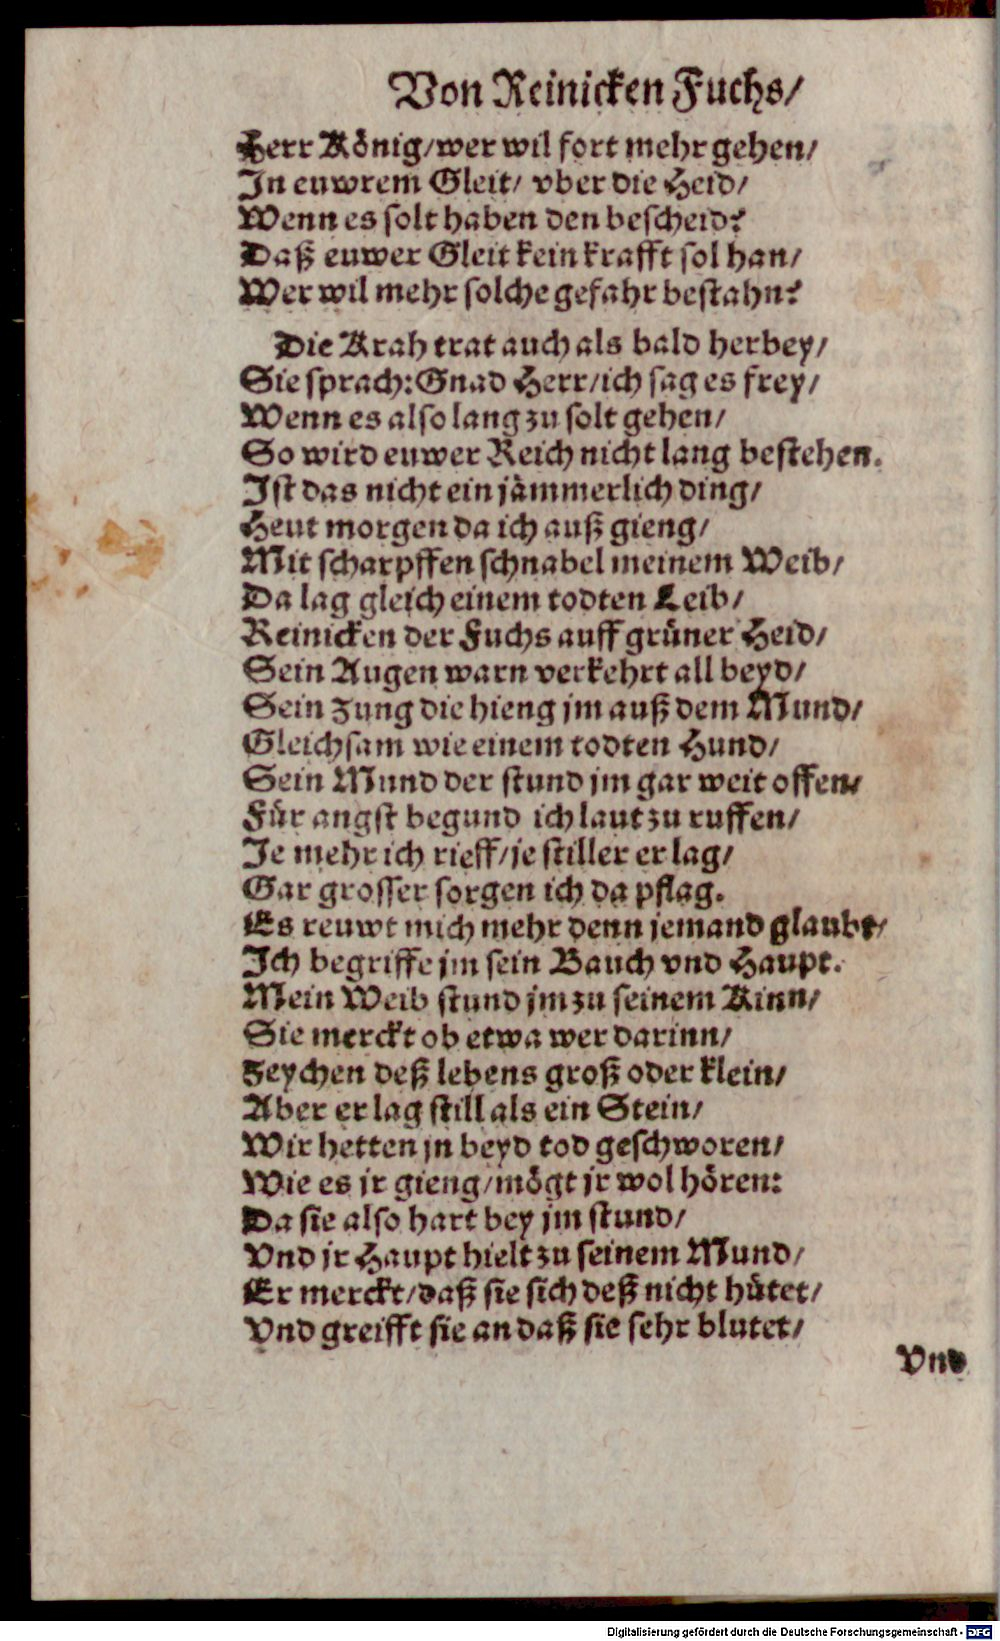 Von Reinicken Fuchs/
Herr König/wer wil fort mehr gehen/
In euwrem Gleit/ vber die Heid/
Wenn es solt haben den bescheid?
Daß euwer Gleit kein krafft sol han/
Wer wil mehr solche gefahr bestahn?
Die Krah trat auch als bald herbey/
Sie sprach: Gnad Herr/ich sag es frey/
Wenn es also lang zu solt gehen/
So wird euwer Reich nicht lang bestehen.
Ist das nicht ein jämmerlich ding/
Heut morgen da ich auß gieng/
Mit scharpffen schnabel meinem Weib/
Da lag gleich einem todten Leib/
Reinicken der Fuchs auff grüner Heid/
Sein Augen warn verkehrt all beyd/
Sein Zung die hieng jm auß dem Mund/
Gleichsam wie einem todten Hund/
Sein Mund der stund jm gar weit offen/
Für angst begund ich laut zu ruffen/
Je mehr ich rieff/je stiller er lag/
Gar grosser sorgen ich da pflag.
Es reuwt mich mehr denn jemand glaubt/
Ich begriffe jm sein Bauch vnd Haupt.
Mein Weib stund jm zu seinem Kinn/
Sie merckt ob etwa wer darinn/
Zeychen deß lebens groß oder klein/
Aber er lag still als ein Stein/
Wir hetten jn beyd tod geschworen/
Wie es jr gieng/mögt jr wol hören:
Da sie also hart bey jm stund/
Vnd jr Haupt hielt zu seinem Mund/
Er merckt/daß sie sich deß nicht hütet/
Vnd greifft sie an daß sie sehr blutet/
Vnd
Digitalisierung gefördert durch die Deutsche Forschungsgemeinschaft - DFG